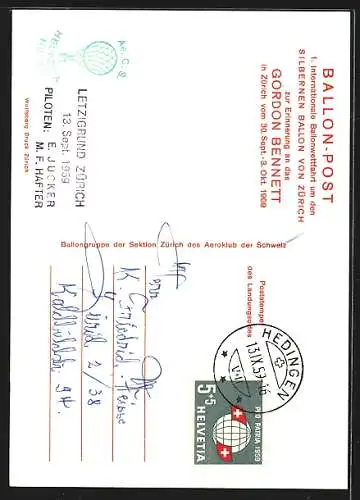 BALLON-POST
1. Internationale Ballonwettfahrt um den
SILBERNEN BALLON VON ZÜRICH
zur Erinnerung an das
GORDON BENNETT
in Zürich vom 30. Sept.-3. Okt. 1909
Ae. C. S.
LETZIGRUND ZÜRICH
13. Sept. 1959
PILOTEN: E. JUCKER
M. F. HAFTER
Würtsberg Druck Zürich
Ballongruppe der Sektion Zürich des Aeroklub der Schweiz
Poststempel
des Landungsortes
HEDINGEN
13.IX.59.-16
PRO PATRIA 1959
5+5
HELVETIA
Herrn
K. Friedrich
Zürich 2/38